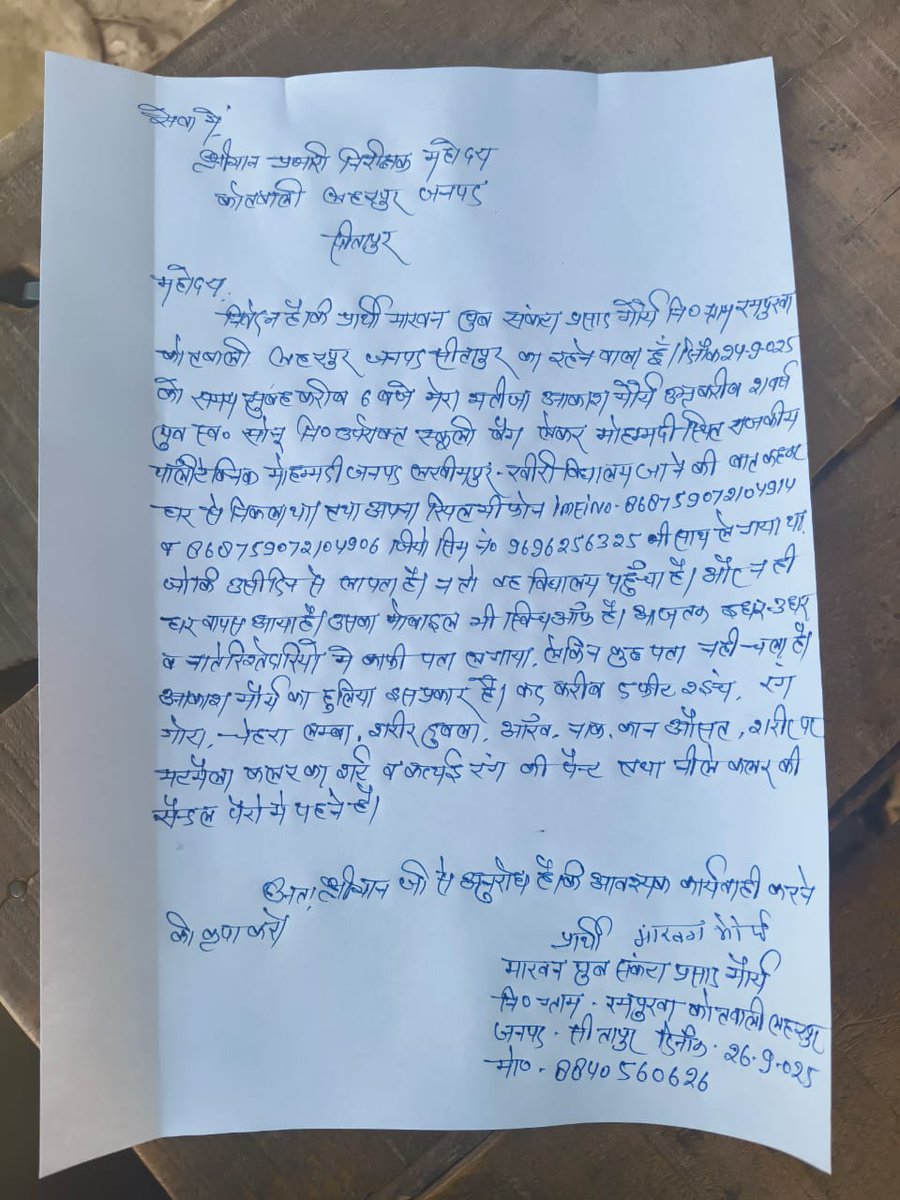 सेवा में,
श्रीमान प्रभारी निरीक्षक महोदय
कोतवाली लहरपुर जनपद
सीतापुर
महोदय,
निवेदन है कि प्रार्थी माखन पुत्र संकटा प्रसाद मौर्य नि० ग्राम रमपुरवा
कोतवाली लहरपुर जनपद सीतापुर का रहने वाला हूँ। दिनाँक 24-9-025
को समय सुबह करीब 6 बजे मेरा भतीजा आकाश मौर्य उम्र करीब वर्ष
पुत्र स्व० सोनू नि० उपरोक्त स्कूली बैग लेकर मोहम्मदी स्थित राजकीय
पॉलीटेक्निक मोहम्मदी जनपद लखीमपुर-खीरी विद्यालय जाने की बात कहकर
घर से निकला था। तथा अपना फोन IMEI No-868759072104914
व 868759072104906 जियो सिम नं० 9696256325 भी साथ ले गया था।
जोकि उसी दिन से लापता है। न तो वह विद्यालय पहुँचा है। और न ही
घर वापस आया है। उसका मोबाइल भी स्विच ऑफ है। आज तक इधर-उधर
व नाते रिश्तेदारियों में काफी पता लगाया, लेकिन कुछ पता नहीं चला है।
आकाश मौर्य का हुलिया इस प्रकार है। कद करीब 5 फीट 2 इंच, रंग
गोरा, चेहरा लम्बा, शरीर दुबला, आँख, नाक, कान औसत, शरीर पर
मटमैला कलर का शर्ट व कत्थई रंग की पैन्ट तथा नीले कलर की
सैन्डल पैरो मे पहने है।
अतः श्रीमान जी से अनुरोध है कि आवश्यक कार्यवाही करने
की कृपा करें।
प्रार्थी माखन मौर्य
माखन पुत्र संकटा प्रसाद मौर्य
नि० ग्राम - रमपुरवा कोतवाली लहरपुर
जनपद - सीतापुर दिनाँक - 26-9-025
मो० - 8840560626